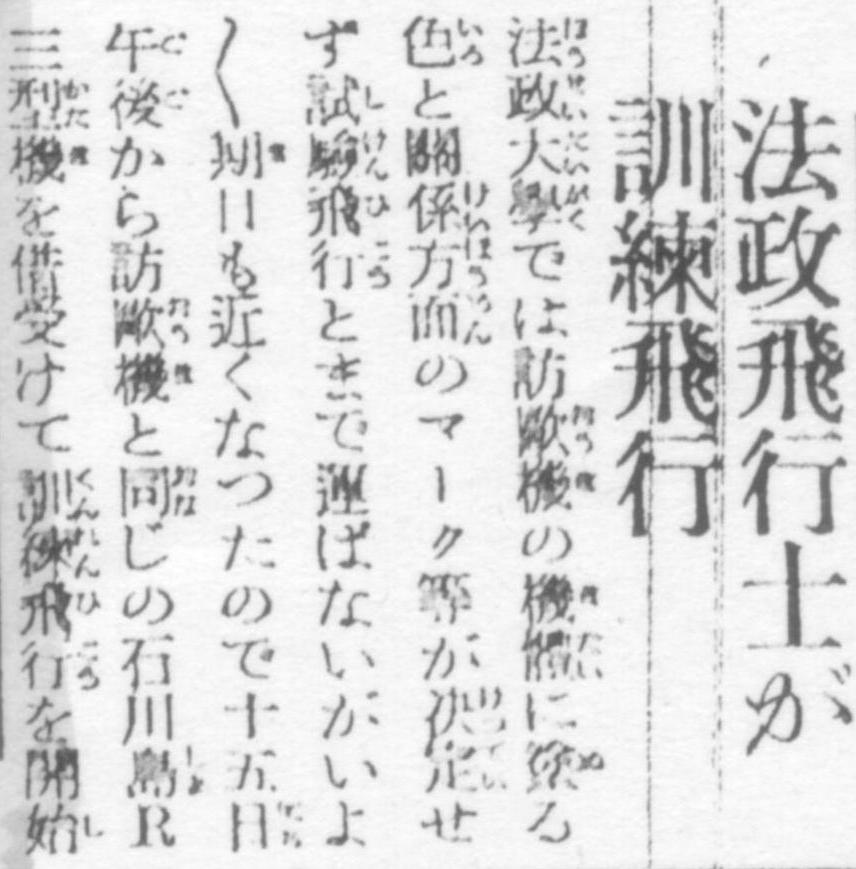 法政飛行士が
訓練飛行
法政大學では訪歐機の機體に塗る
色と關係方面のマーク等が決定せ
ず試驗飛行とまで運ばないがいよ
〱期日も近くなつたので十五日
午後から訪歐機と同じの石川島R
三型機を借受けて訓練飛行を開始